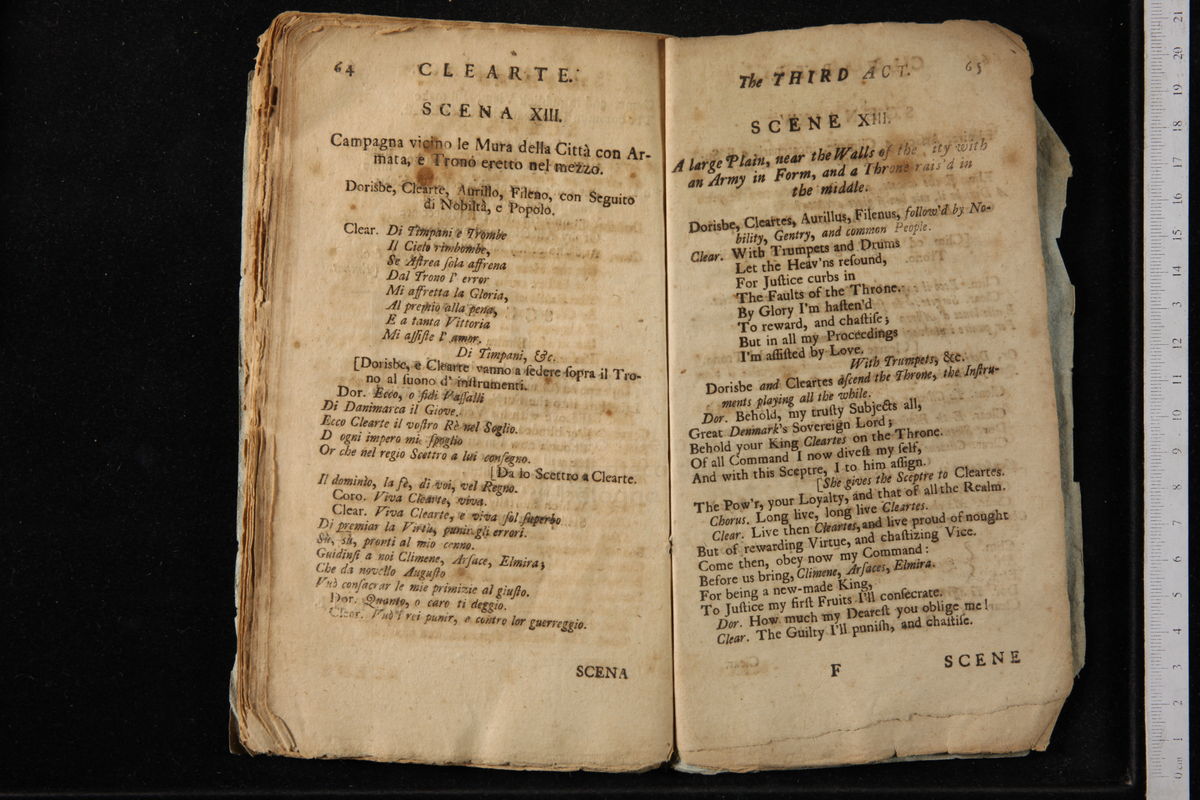 64 CLEARTE.
SCENA XIII.
Campagna vicino le Mura della Città con Ar-
mata, e Trono eretto nel mezzo.
Dorisbe, Clearte, Aurillo, Fileno, con Seguito
di Nobiltà, e Popolo.
Clear. Di Timpani e Trombe
Il Cielo rimbombe,
Se Aſtrea ſola affrena
Dal Trono l' error
Mi affretta la Gloria,
Al premio alla pena,
E a tanta Vittoria
Mi aſſiſte l' amor.
Di Timpani, &c.
[Dorisbe, e Clearte vanno a ſedere ſopra il Tro-
no al ſuono d' inſtrumenti.
Dor. Ecco, o fidi Vaſſalli
Di Danimarca il Giove.
Ecco Clearte il voſtro Rè nel Soglio.
D ogni impero mi ſpoglio
Or che nel regio Scettro a lui conſegno.
[Da lo Scettro a Clearte.
Il dominio, la fè, di voi, vel Regno.
Coro. Viva Clearte, viva.
Clear. Viva Clearte, e viva ſol ſuperbo
Di premiar la Virtù, punir gli errori.
Sù, sù, pronti al mio cenno.
Guidinſi a noi Climene, Arſace, Elmira;
Che da novello Auguſto
Vuò conſacrar le mie primizie al giuſto.
Dor. Quanto, o caro ti deggio.
Clear. Vuò i rei punir, e contro lor guerreggio.
SCENA
The THIRD ACT. 65
SCENE XIII.
A large Plain, near the Walls of the ity with
an Army in Form, and a Throne rais'd in
the middle.
Dorisbe, Cleartes, Aurillus, Filenus, follow'd by No-
bility, Gentry, and common People.
Clear. With Trumpets and Drums
Let the Heav'ns reſound,
For Juſtice curbs in
The Faults of the Throne.
By Glory I'm haſten'd
To reward, and chaſtiſe;
But in all my Proceedings
I'm aſſiſted by Love.
With Trumpets, &c.
Dorisbe and Cleartes aſcend the Throne, the Inſtru-
ments playing all the while.
Dor. Behold, my truſty Subjects all,
Great Denmark's Sovereign Lord;
Behold your King Cleartes on the Throne.
Of all Command I now diveſt my ſelf,
And with this Sceptre, I to him aſſign.
[She gives the Sceptre to Cleartes.
The Pow'r, your Loyalty, and that of all the Realm.
Chorus. Long live, long live Cleartes.
Clear. Live then Cleartes, and live proud of nought
But of rewarding Virtue, and chaſtizing Vice.
Come then, obey now my Command:
Before us bring, Climene, Arſaces, Elmira.
For being a new-made King,
To Juſtice my firſt Fruits I'll conſecrate.
Dor. How much my Deareſt you oblige me!
Clear. The Guilty I'll puniſh, and chaſtiſe.
F SCENE
0 cm 1 2 3 4 5 6 7 8 9 10 11 12 13 14 15 16 17 18 19 20 21